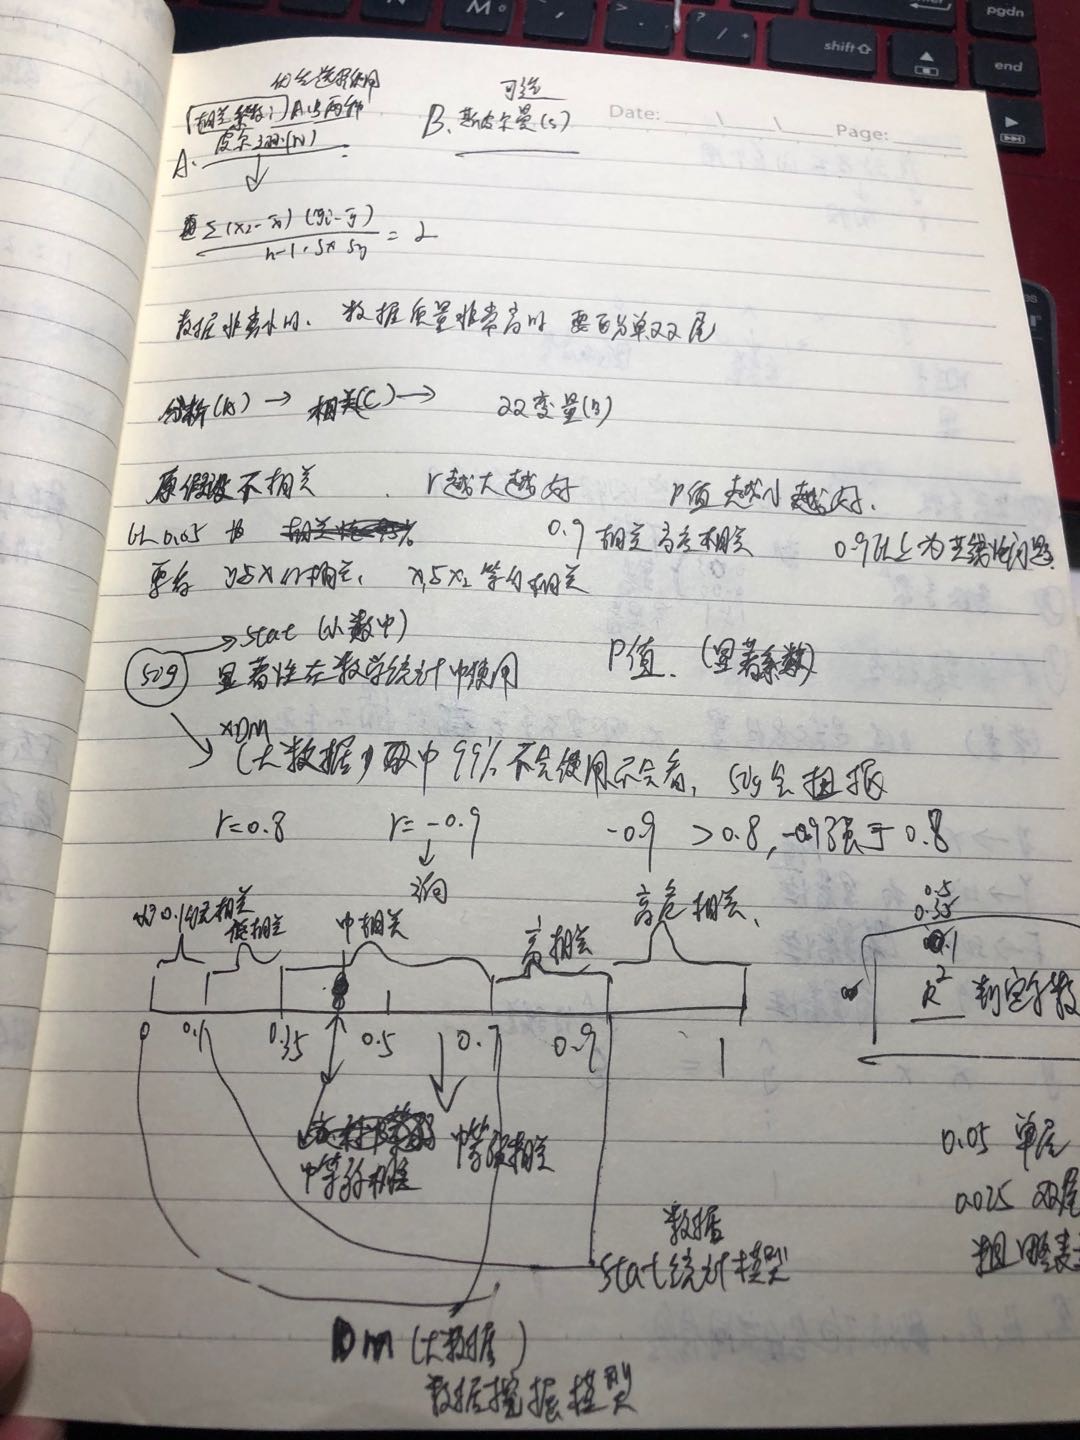 pgdn
shift
end
Date:
Page:
优先选择使用
相关系数:) A,B两种
可选
A. 皮尔逊(N)
B. 斯皮尔曼(S)
Σ(x₂-x̄)(yi-ȳ)
n-1·Sx Sy
= 2
数据非常小时、数据质量非常高时 要区分单双尾
分析(A) → 相关(C) → 双变量(B)
原假设不相关
r越大越好
P值越小越好.
以0.05 为
0.9 相关 高危相关
0.9以上为共线性问题.
要存 y与x1相关, x1与x2 等于相关
→Stat (小数中)
sig
显著性在数学统计中使用
P值. (显著系数)
DM
(大数据) 中99%不会使用不会看, sig会
r=0.8
r= -0.9
-0.9 >0.8, -0.9强于0.8
0.1 无相关
低相关
中相关
高相关
高危相关、
0.5
0.35
0.1
R² 判定系数
0
0.1
0.35
0.5
0.7
0.9
1
中等弱相关
中等强相关
0.05 单尾
0.025 双尾
数据
Stat统计模型
DM (大数据)
数据挖掘模型